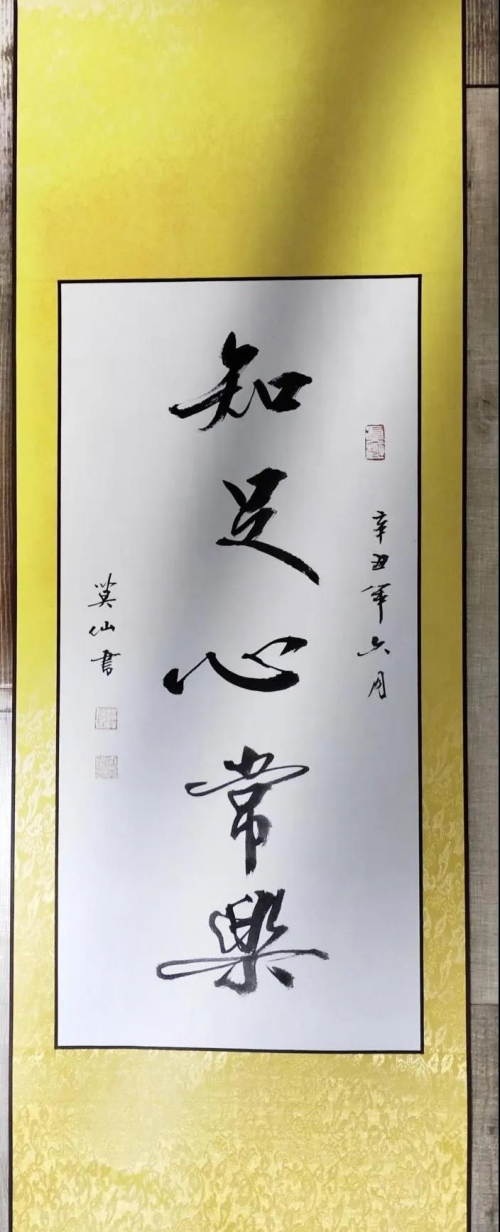 辛丑年六月
知足心常樂
莫仙書